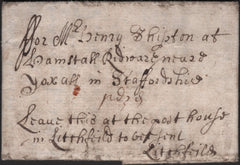 ffor Mr Henry Shipton at
Hamstall Ridware neare
Yoxall in Staffordshire
pd 3
Leave this at the post house
in Litchfeild to be sent
Litchfeild